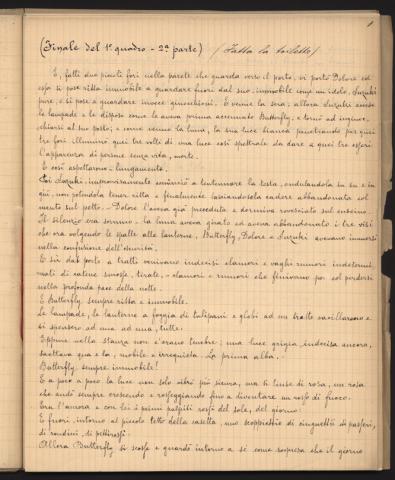 1
(Finale del 1º quadro - 2ª parte) (Fatta la toiletta)
E, fatti due piccoli fori nella parete che guarda verso il porto, vi portò Dolore ed
essa si pose ritta immobile a guardare fuori dal suo; immobile come un idolo. Suzuki
pure, si pose a guardare invece ginocchioni. E venne la sera; allora Suzuki accese
le lampade e le dispose come le aveva prima accennato Butterfly, e tornò ad inginoc-
chiarsi al suo posto; e come venne la luna, la sua luce bianca penetrando per quei
tre fori illuminò quei tre volti di una luce così spettrale da dare a quei tre esseri
l'apparenza di persone senza vita, morte.
E così aspettarono - lungamente.
Poi Suzuki improvvisamente cominciò a tentennare la testa, ondulandola in su e in
giù, non potendola tener ritta e finalmente lasciandosela cadere abbandonata col
mento sul petto - Dolore l'aveva già preceduta e dormiva rovesciato sul cuscino.
Il silenzio era sommo. La luna aveva girato ed aveva abbandonato i tre visi
che ora volgendo le spalle alle lanterne, Butterfly, Dolore e Suzuki avevano immersi
nella confusione dell'oscurità.
E sù dal porto a tratti venivano indecisi clamori e vaghi rumori indetermi
nati di catene smosse, tirate, clamori e rumori che finivano poi col perdersi
nella profonda pace della notte.
E Butterfly sempre ritta e immobile.
Le lampade, le lanterne a foggia di tulipani e globi ad un tratto vacillarono e
si spensero ad una ad una, tutte.
Eppure nella stanza non c'erano tenebre; una luce grigia, indecisa ancora,
saettava qua e là, mobile e irrequieta. La prima alba.
Butterfly sempre immobile!
E a poco a poco la luce non solo vibrò più sicura, ma si tinse di rosa, un rosa
che andò sempre crescendo e rosseggiando fino a diventare un rosso di fuoco.
Era l'aurora e con lei i primi palpiti rossi del sole, del giorno.
E fuori, intorno al piccolo tetto della casetta, uno scoppiettio di cinguettii di passeri,
di rondini, di pettirossi.
Allora Butterfly si scosse e guardò intorno a sè come sorpresa che il giorno